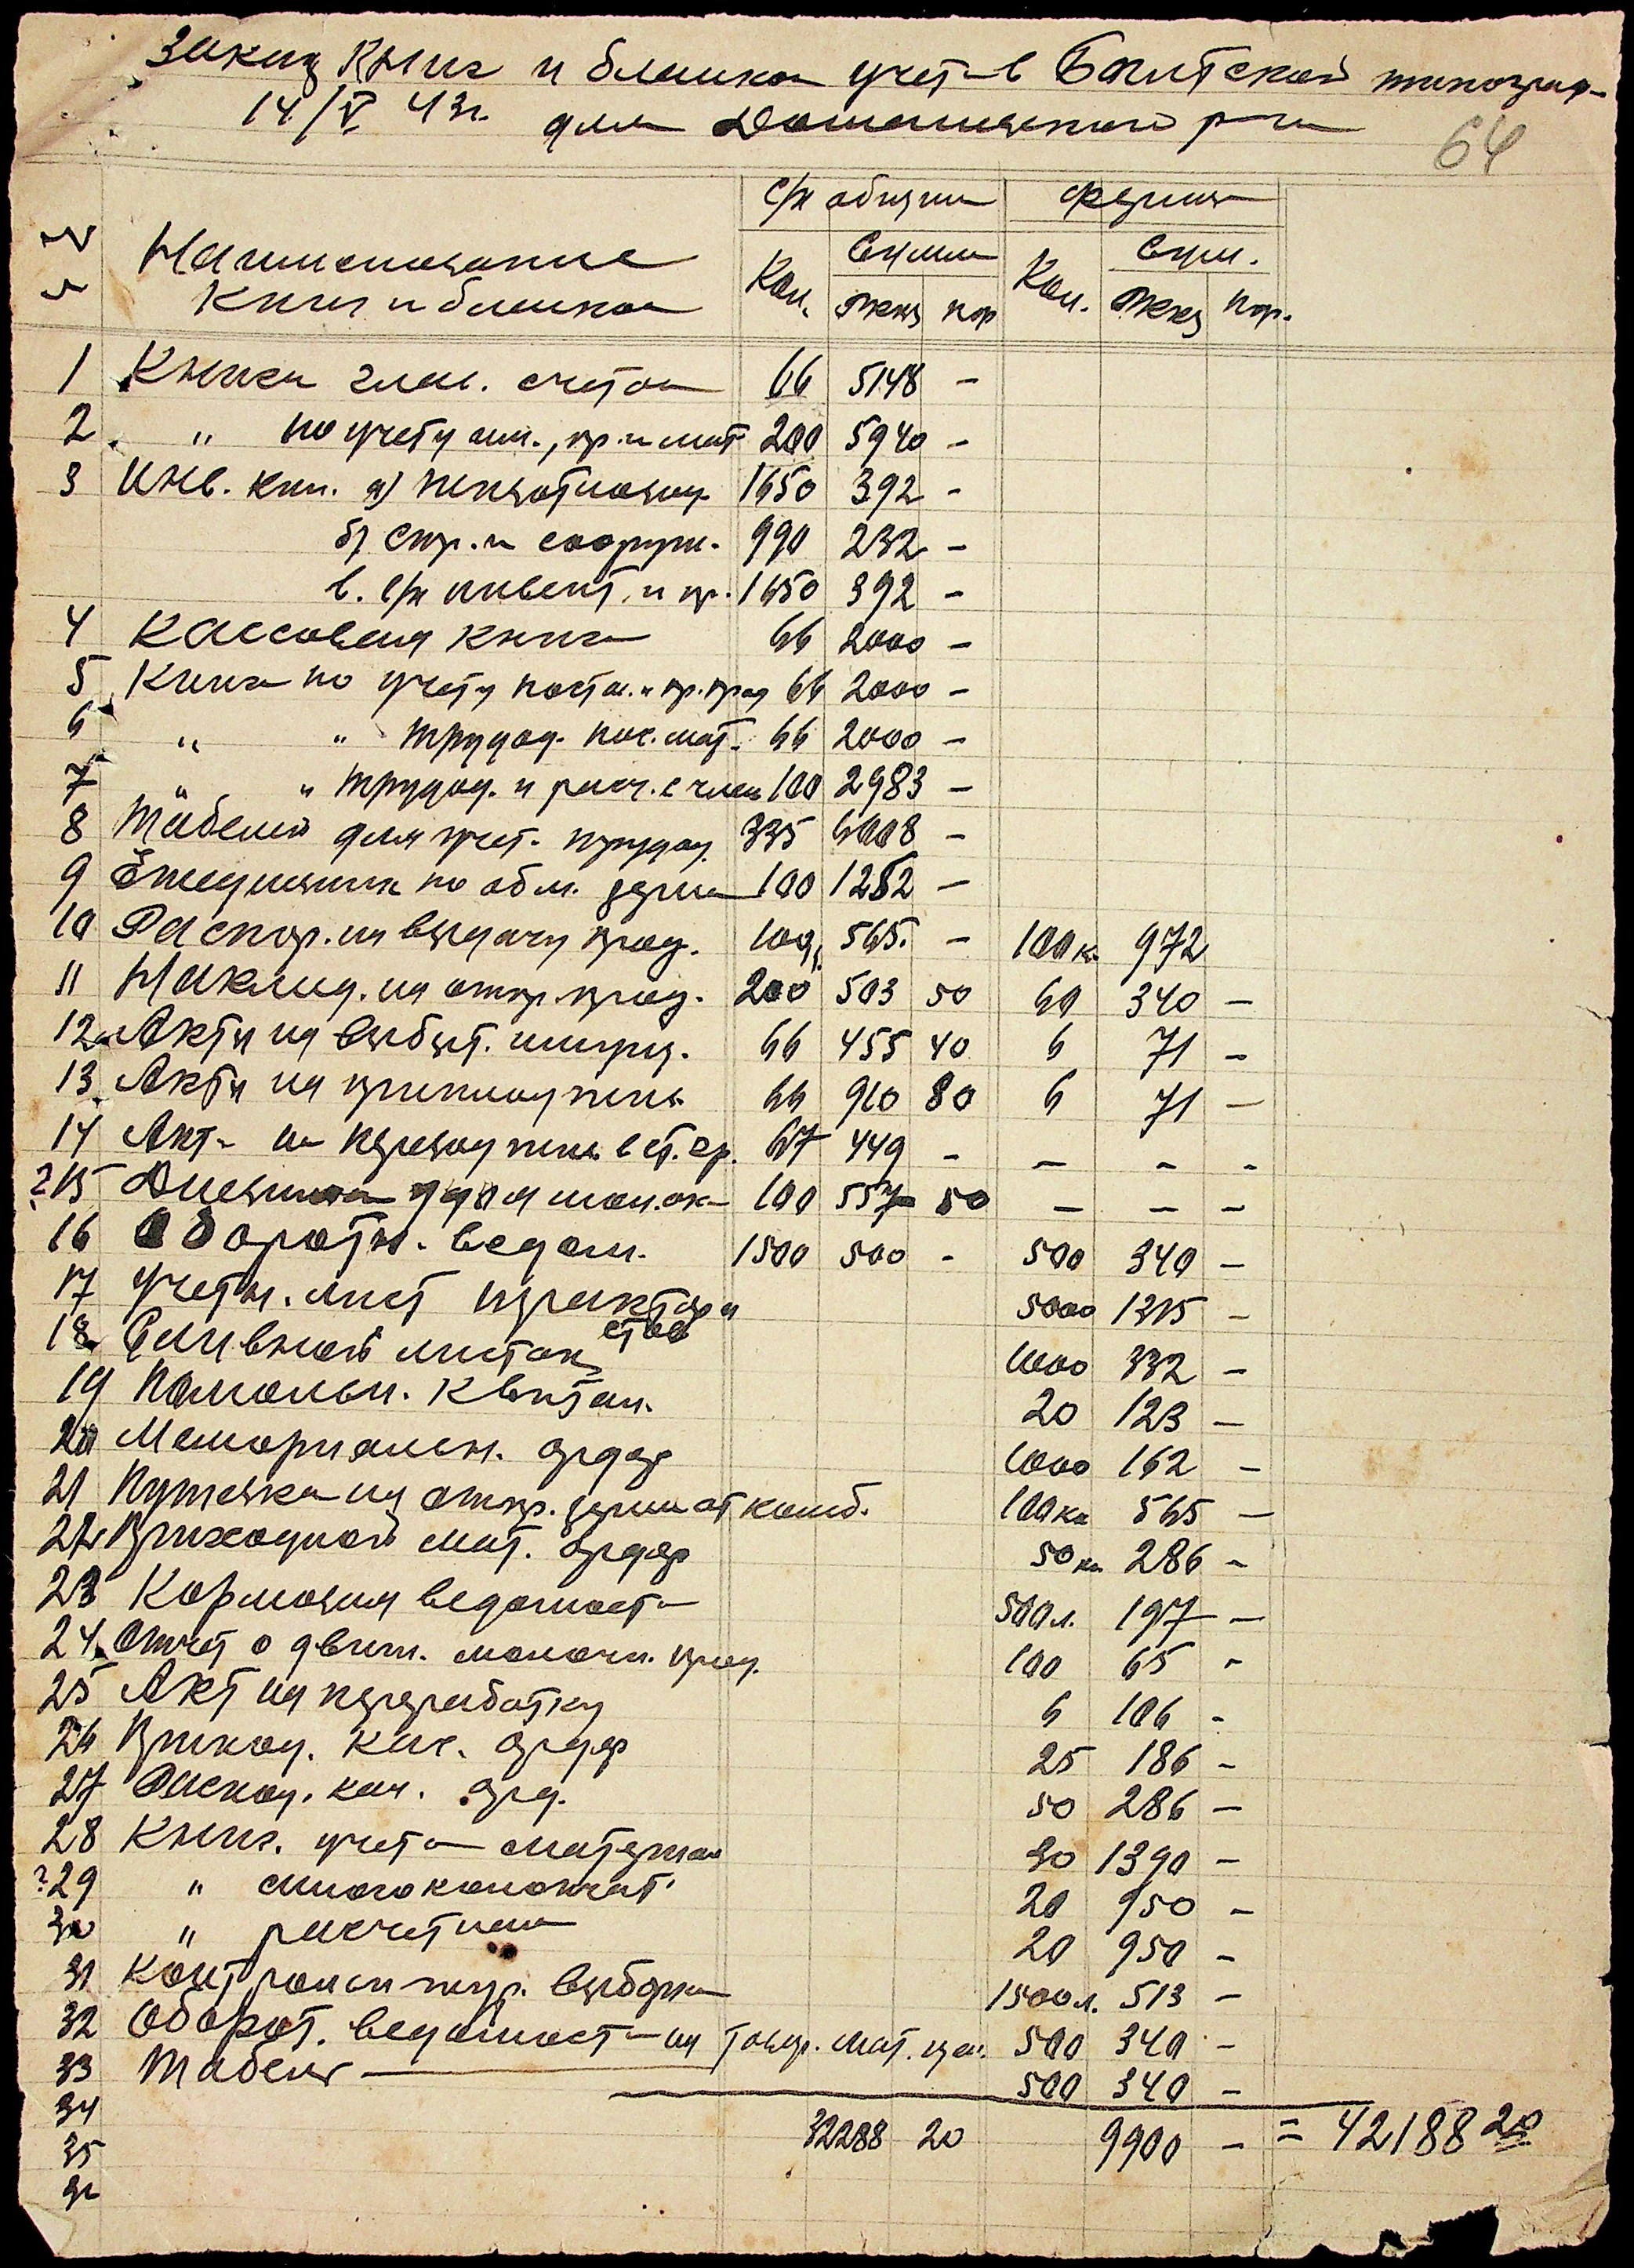 Заказ книг и бланков учета в Балтской типограф.
14/V 43 г. для Доманевского р-на
64
с/х общин ферма
№ Наименование Сумма Сум.
книг и бланков Кол. экз пор Кол. экз пор.
1 Книги глав. счетов 66 5148 –
2 " по учету ам., пр. и мат. 200 5940 –
3 Инв. кни. а) 1650 392 –
б) стр. и сооруж. 990 232 –
в. с/х инвент. и пр. 1650 392 –
4 Кассовая книга 66 2000 –
5 Книга по учету пост. и пр. прод 66 2000 –
6 " " трудод. 66 2000 –
7 " " трудод. и расч. с член 100 2983 –
8 Табелей для учет. трудод. 335 6008 –
9 Ежедневник по обм. зерна 100 1282 –
10 Распор. на выдачу прод. 100 565. – 100 к. 972
11 Наклад. на отпр. прод. 200 503 50 60 340 –
12 Акты на выбыт. 66 455 40 6 71 –
13 Акты на 66 910 80 6 71 –
14 Акт на перевод в ст. гр. 67 449 – – – –
? 15 Дневник удоя молока 100 557 50 – – –
16 Оборотн. ведом. 1500 500 – 500 340 –
17 Учетн. лист 5000 1215 –
18 Сливной листок 1000 332 –
19 Помольн. квитан. 20 123 –
20 Мемориальн. ордер 1000 162 –
21 Путевка на отпр. зерна от комб. 100 кн 565 –
22 Приходной мат. ордер 50 кн. 286 –
23 Кормовая ведомость 500 л. 197 –
24 Отчет о движ. молочн. прод. 100 65 –
25 Акт на переработку 6 106 –
26 Приход. кас. ордер 25 186 –
27 Расход. кас. орд. 50 286 –
28 Книг. учета материал 30 1390 –
? 29 " многоколончат. 20 950 –
30 " расчетная 20 950 –
31 Контрольн журн. выборки 1500 л. 513 –
32 Оборот. ведомость на товар. мат. цен. 500 340 –
33 Табель 500 340 –
34 32288 20 9900 – = 42188 20
35
36